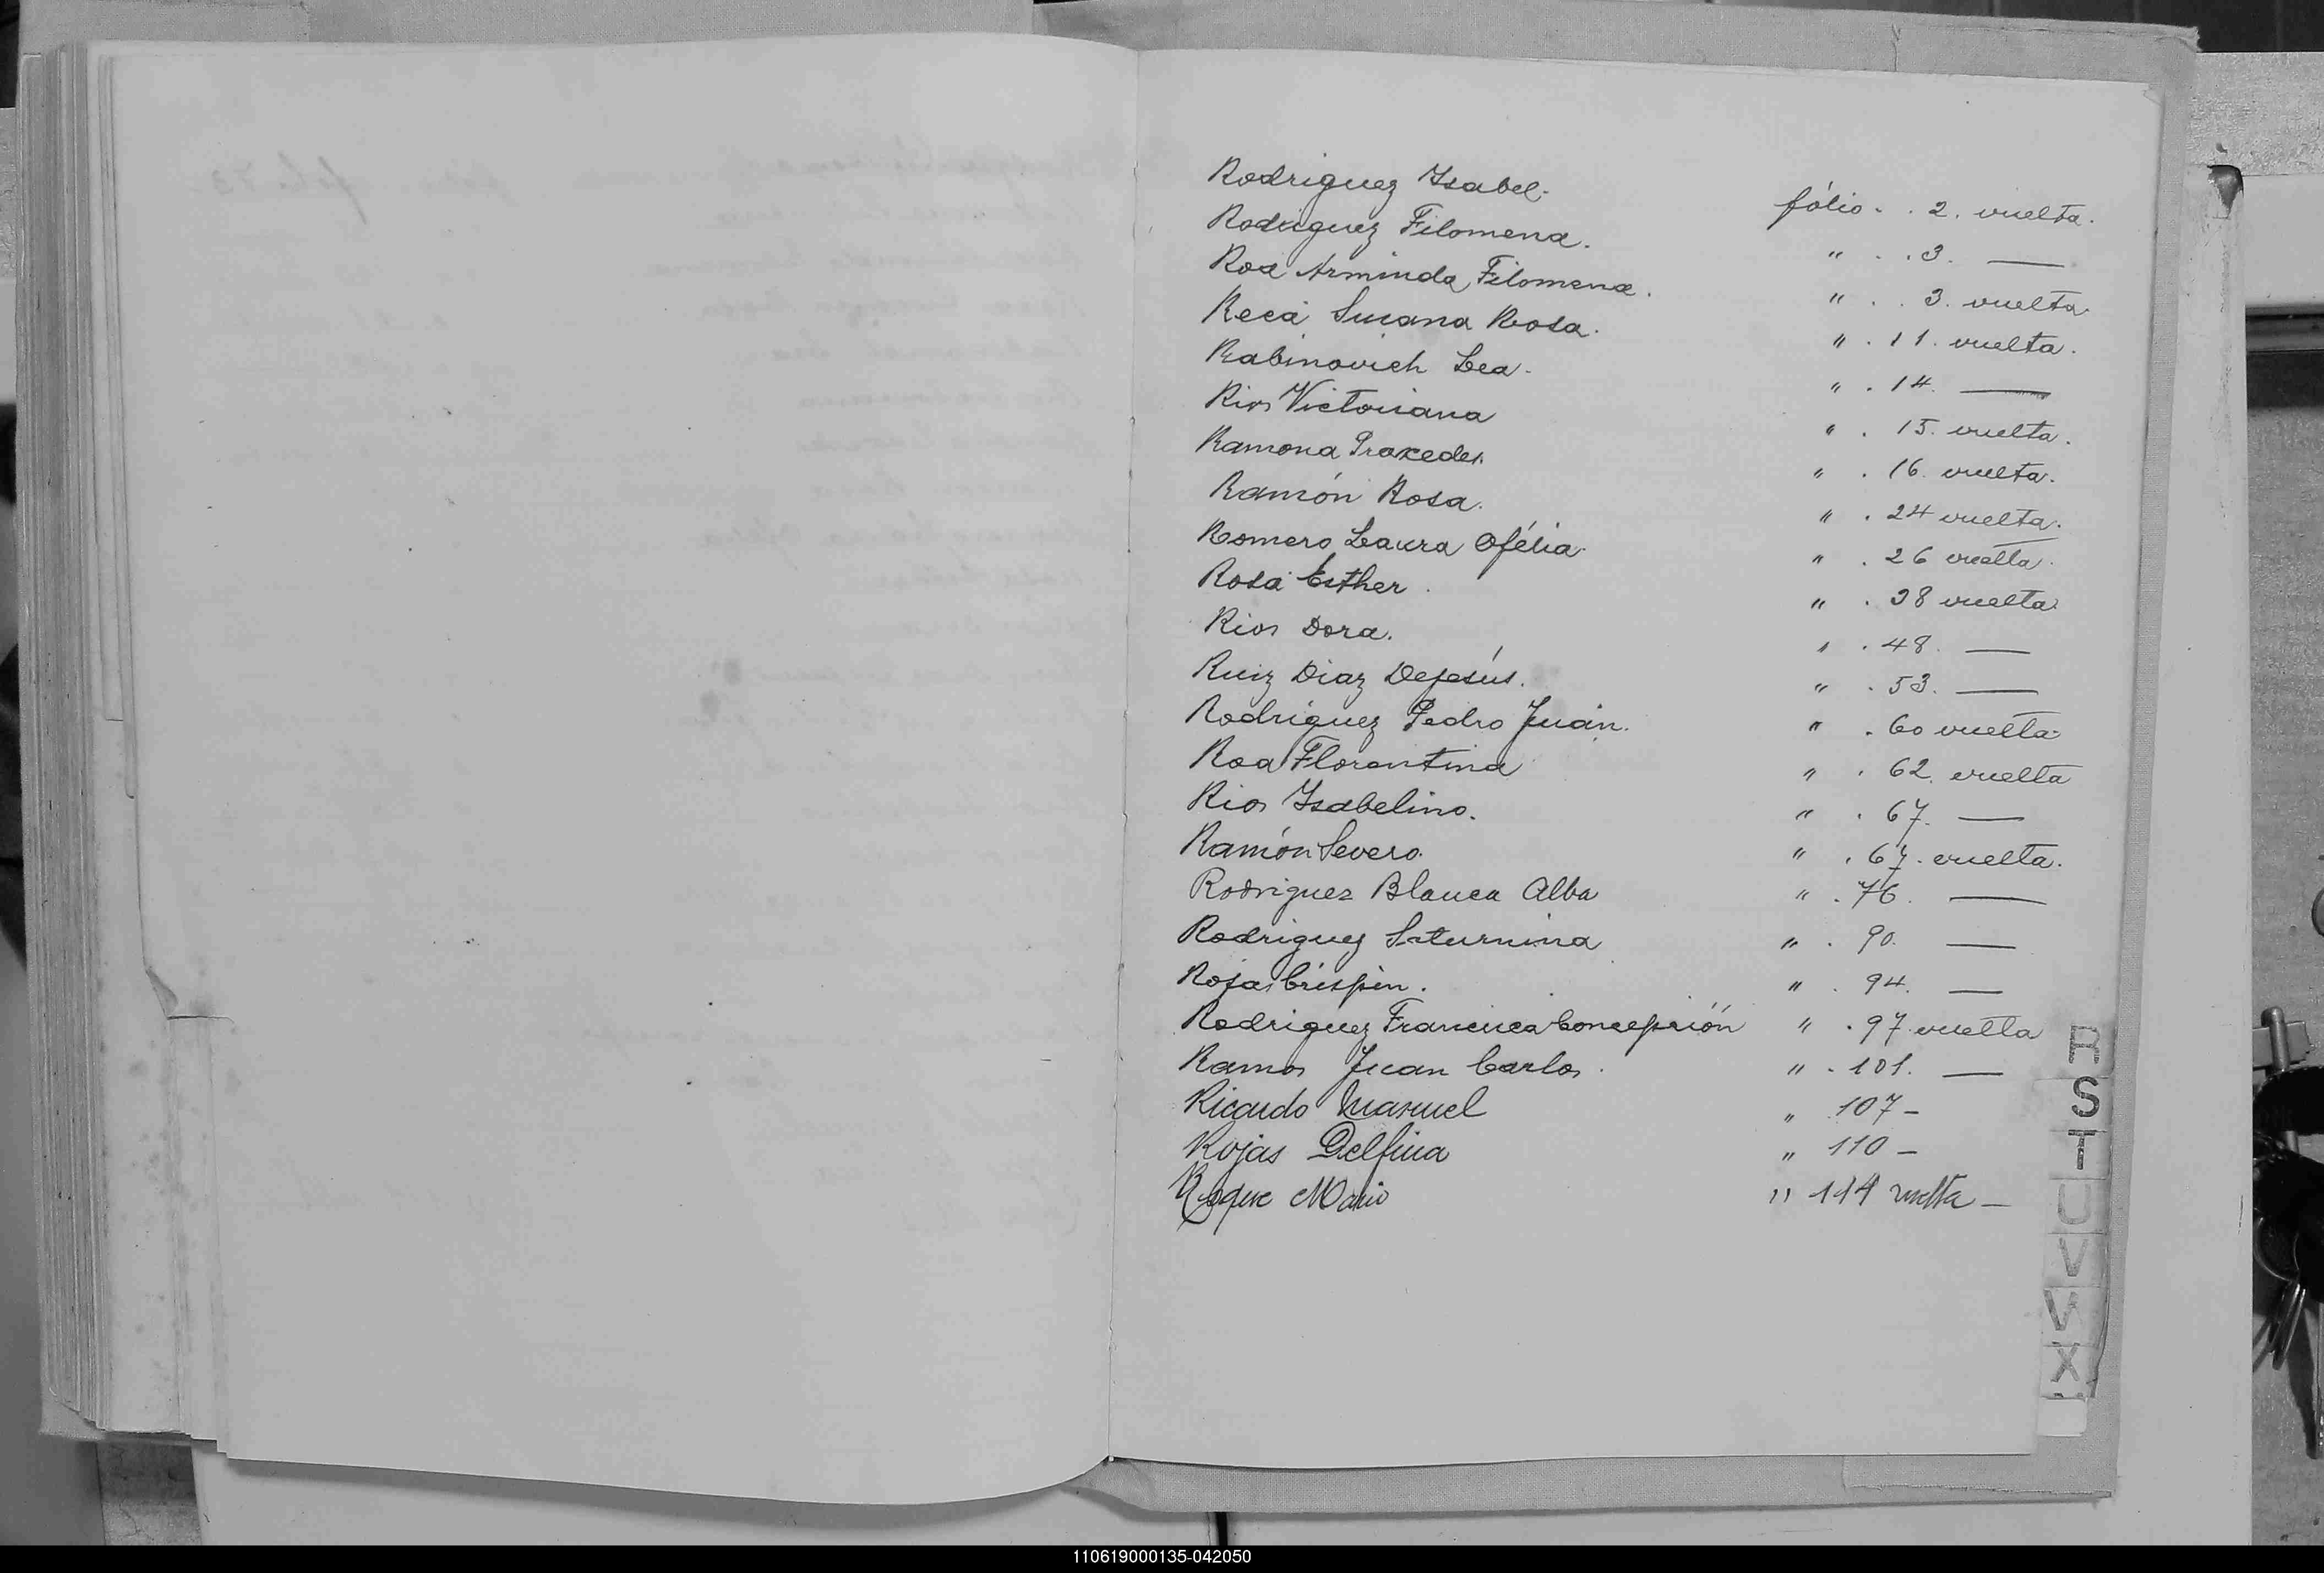 Rodriguez Isabel. fólio . . 2. vuelta.
Rodriguez Filomena. " . . 3. —
Roa Arminda Filomena. " . . 3. vuelta.
Reca Susana Rosa. " . 11. vuelta.
Rabinovich Lea. " . 14. —
Rios Victoriana " . 15. vuelta.
Ramona Praxedes. " . 16. vuelta.
Ramón Rosa. " . 24 vuelta.
Romero Laura Ofélia. " . 26 vuelta.
Rosa Esther. " . 38 vuelta.
Rios Dora. " . 48. —
Ruiz Diaz Dejesús. " . 53. —
Rodriguez Pedro Juan. " . 60 vuelta.
Roa Florentina " . 62. vuelta
Rios Isabelino. " . 67. —
Ramón Severo. " . 67. vuelta.
Rodriguez Blanca Alba " . 76. —
Rodriguez Saturnina " . 90. —
Rojas Crispin. " . 94. —
Rodriguez Francisca Concepción " . 97 vuelta
Ramos Juan Carlos. " . 101. —
Ricardo Manuel " 107 —
Rojas Delfina " 110 —
Roque Mario " 114 vuelta —
R
S
T
U
V
W
X
110619000135-042050